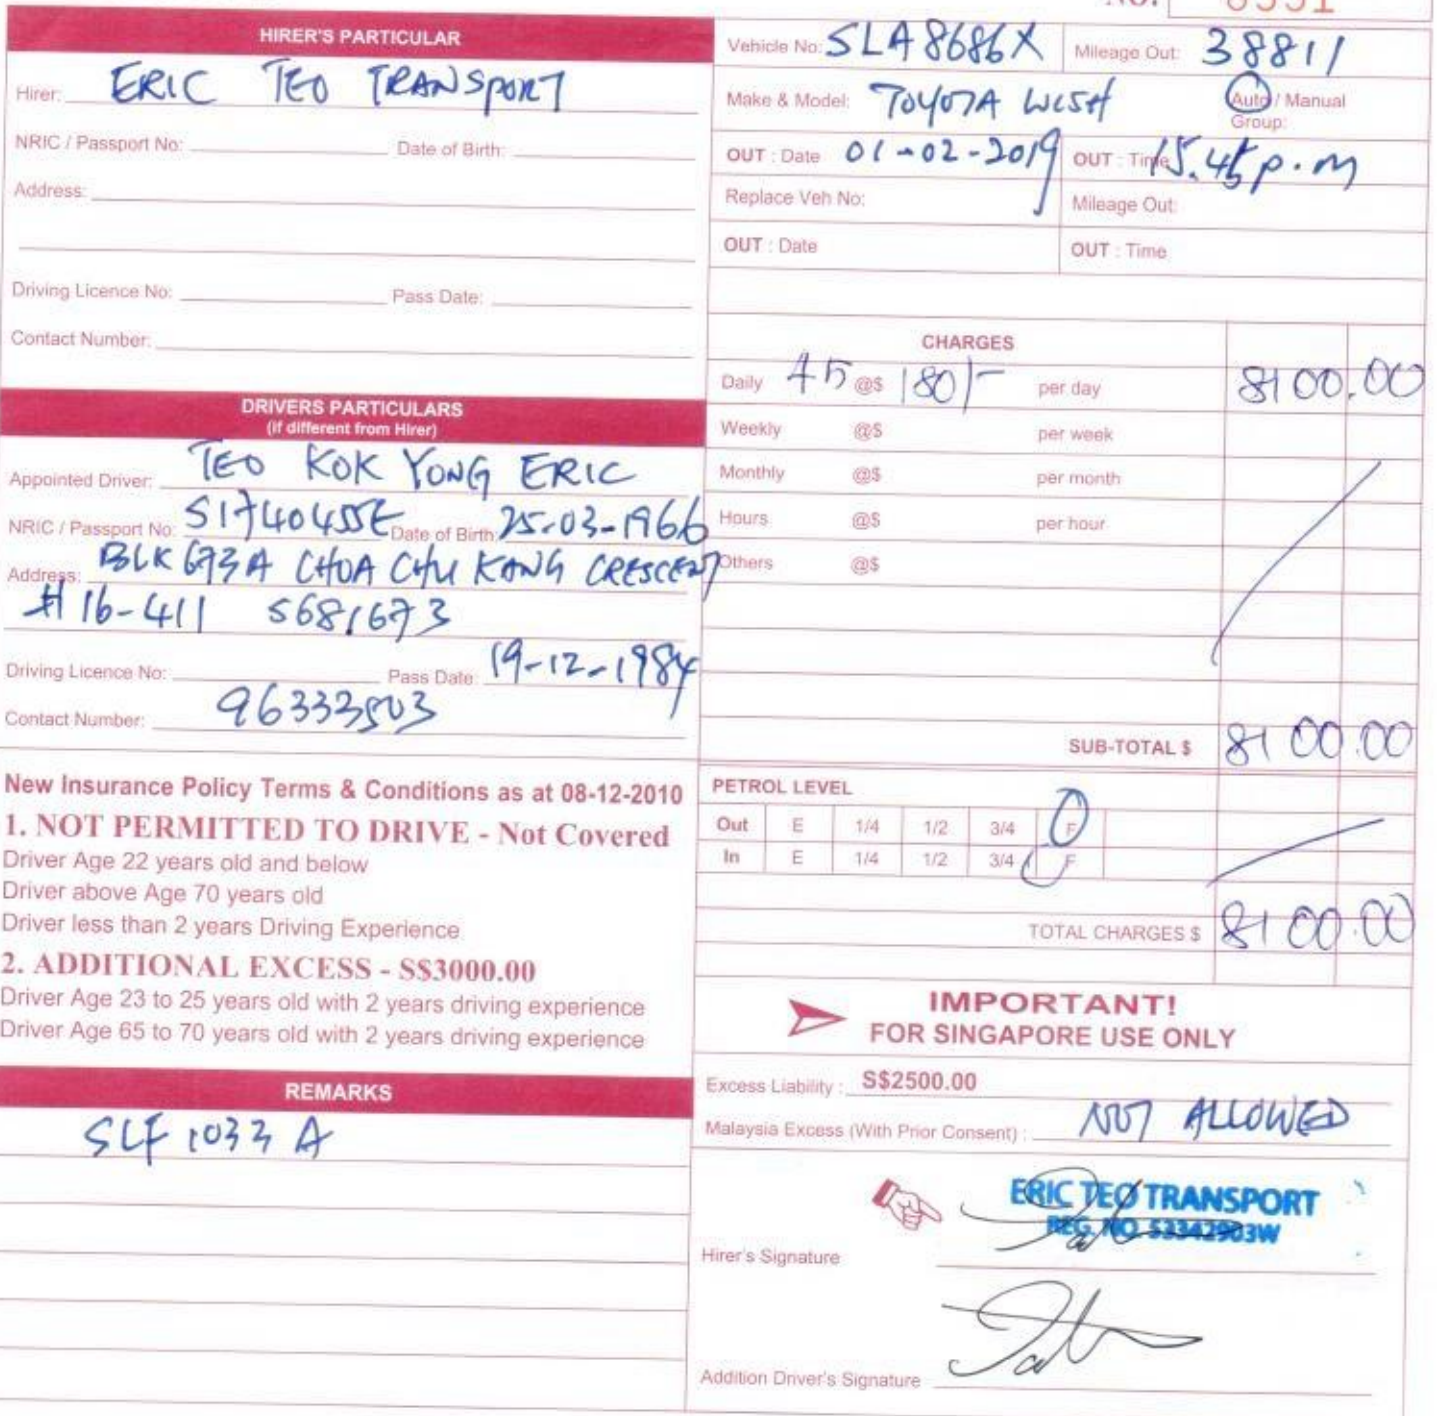 NO.
HIRER'S PARTICULAR
Hirer: ERIC TEO TRANSPORT
NRIC / Passport No: Date of Birth:
Address:
Driving Licence No: Pass Date:
Contact Number:
DRIVERS PARTICULARS
(if different from Hirer)
Appointed Driver: TEO KOK YONG ERIC
NRIC / Passport No: S1740455E Date of Birth: 25-03-1966
Address: BLK 673A CHOA CHU KANG CRESCENT
#16-411 S681673
Driving Licence No: Pass Date: 19-12-1984
Contact Number: 96333503
New Insurance Policy Terms & Conditions as at 08-12-2010
1. NOT PERMITTED TO DRIVE - Not Covered
Driver Age 22 years old and below
Driver above Age 70 years old
Driver less than 2 years Driving Experience
2. ADDITIONAL EXCESS - S$3000.00
Driver Age 23 to 25 years old with 2 years driving experience
Driver Age 65 to 70 years old with 2 years driving experience
REMARKS
SLF 1033 A
Vehicle No: SLA8686X Mileage Out: 38811
Make & Model: TOYOTA WISH Auto / Manual
Group:
OUT : Date 01-02-2019 OUT : Time 15.45 p.m
Replace Veh No: Mileage Out:
OUT : Date OUT : Time
CHARGES
Daily 45 @$ 180/- per day 8100.00
Weekly @$ per week
Monthly @$ per month
Hours @$ per hour
Others @$
SUB-TOTAL $ 8100.00
PETROL LEVEL
Out E 1/4 1/2 3/4 F
In E 1/4 1/2 3/4 F
TOTAL CHARGES $ 8100.00
IMPORTANT!
FOR SINGAPORE USE ONLY
Excess Liability : S$2500.00
Malaysia Excess (With Prior Consent) : NOT ALLOWED
ERIC TEO TRANSPORT
REG. NO 53342903W
Hirer's Signature
Addition Driver's Signature